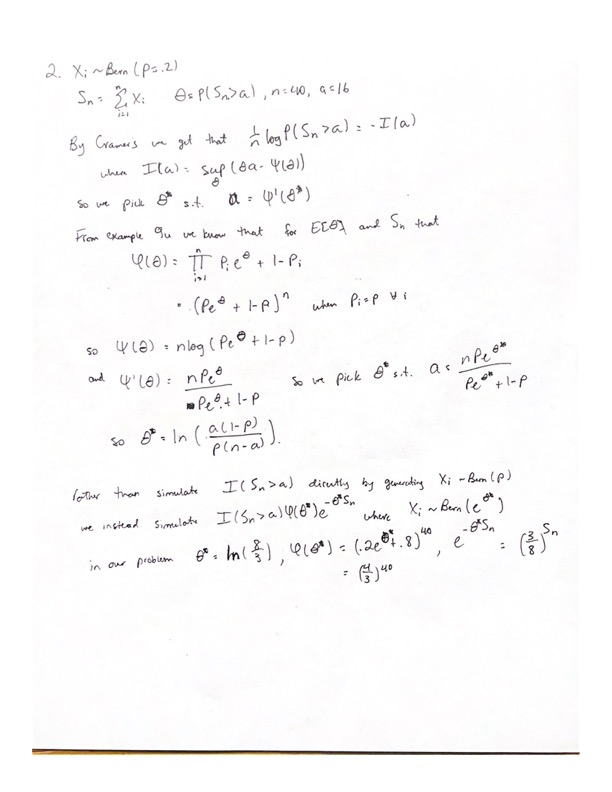 2. Xi ~ Bern (p=.2)
Sn = Σ_{i=1}^{n} Xi   θ = P(Sn>a), n=40, a=16
By Cramers we get that 1/n log P(Sn>a) = -I(a)
where I(a) = sup_θ (θa - Ψ(θ))
so we pick θ* s.t. a = Ψ'(θ*)
From example 9u we know that for E[θ] and Sn that
φ(θ) = ∏_{i=1}^{n} Pi e^θ + 1-Pi
= (Pe^θ + 1-P)^n when Pi=P ∀ i
so Ψ(θ) = n log (Pe^θ + 1-p)
and Ψ'(θ) = nPe^θ / (Pe^θ + 1-p) so we pick θ* s.t. a = nPe^θ* / (Pe^θ* + 1-p)
so θ* = ln (a(1-p) / p(n-a)).
rather than simulate I(Sn>a) directly by generating Xi ~ Bern(p)
we instead simulate I(Sn>a) φ(θ*) e^{-θ*Sn} where Xi ~ Bern(e^θ*)
in our problem θ* = ln(8/3), φ(θ*) = (.2e^θ* + .8)^40, e^{-θ*Sn} = (3/8)^Sn
= (4/3)^40